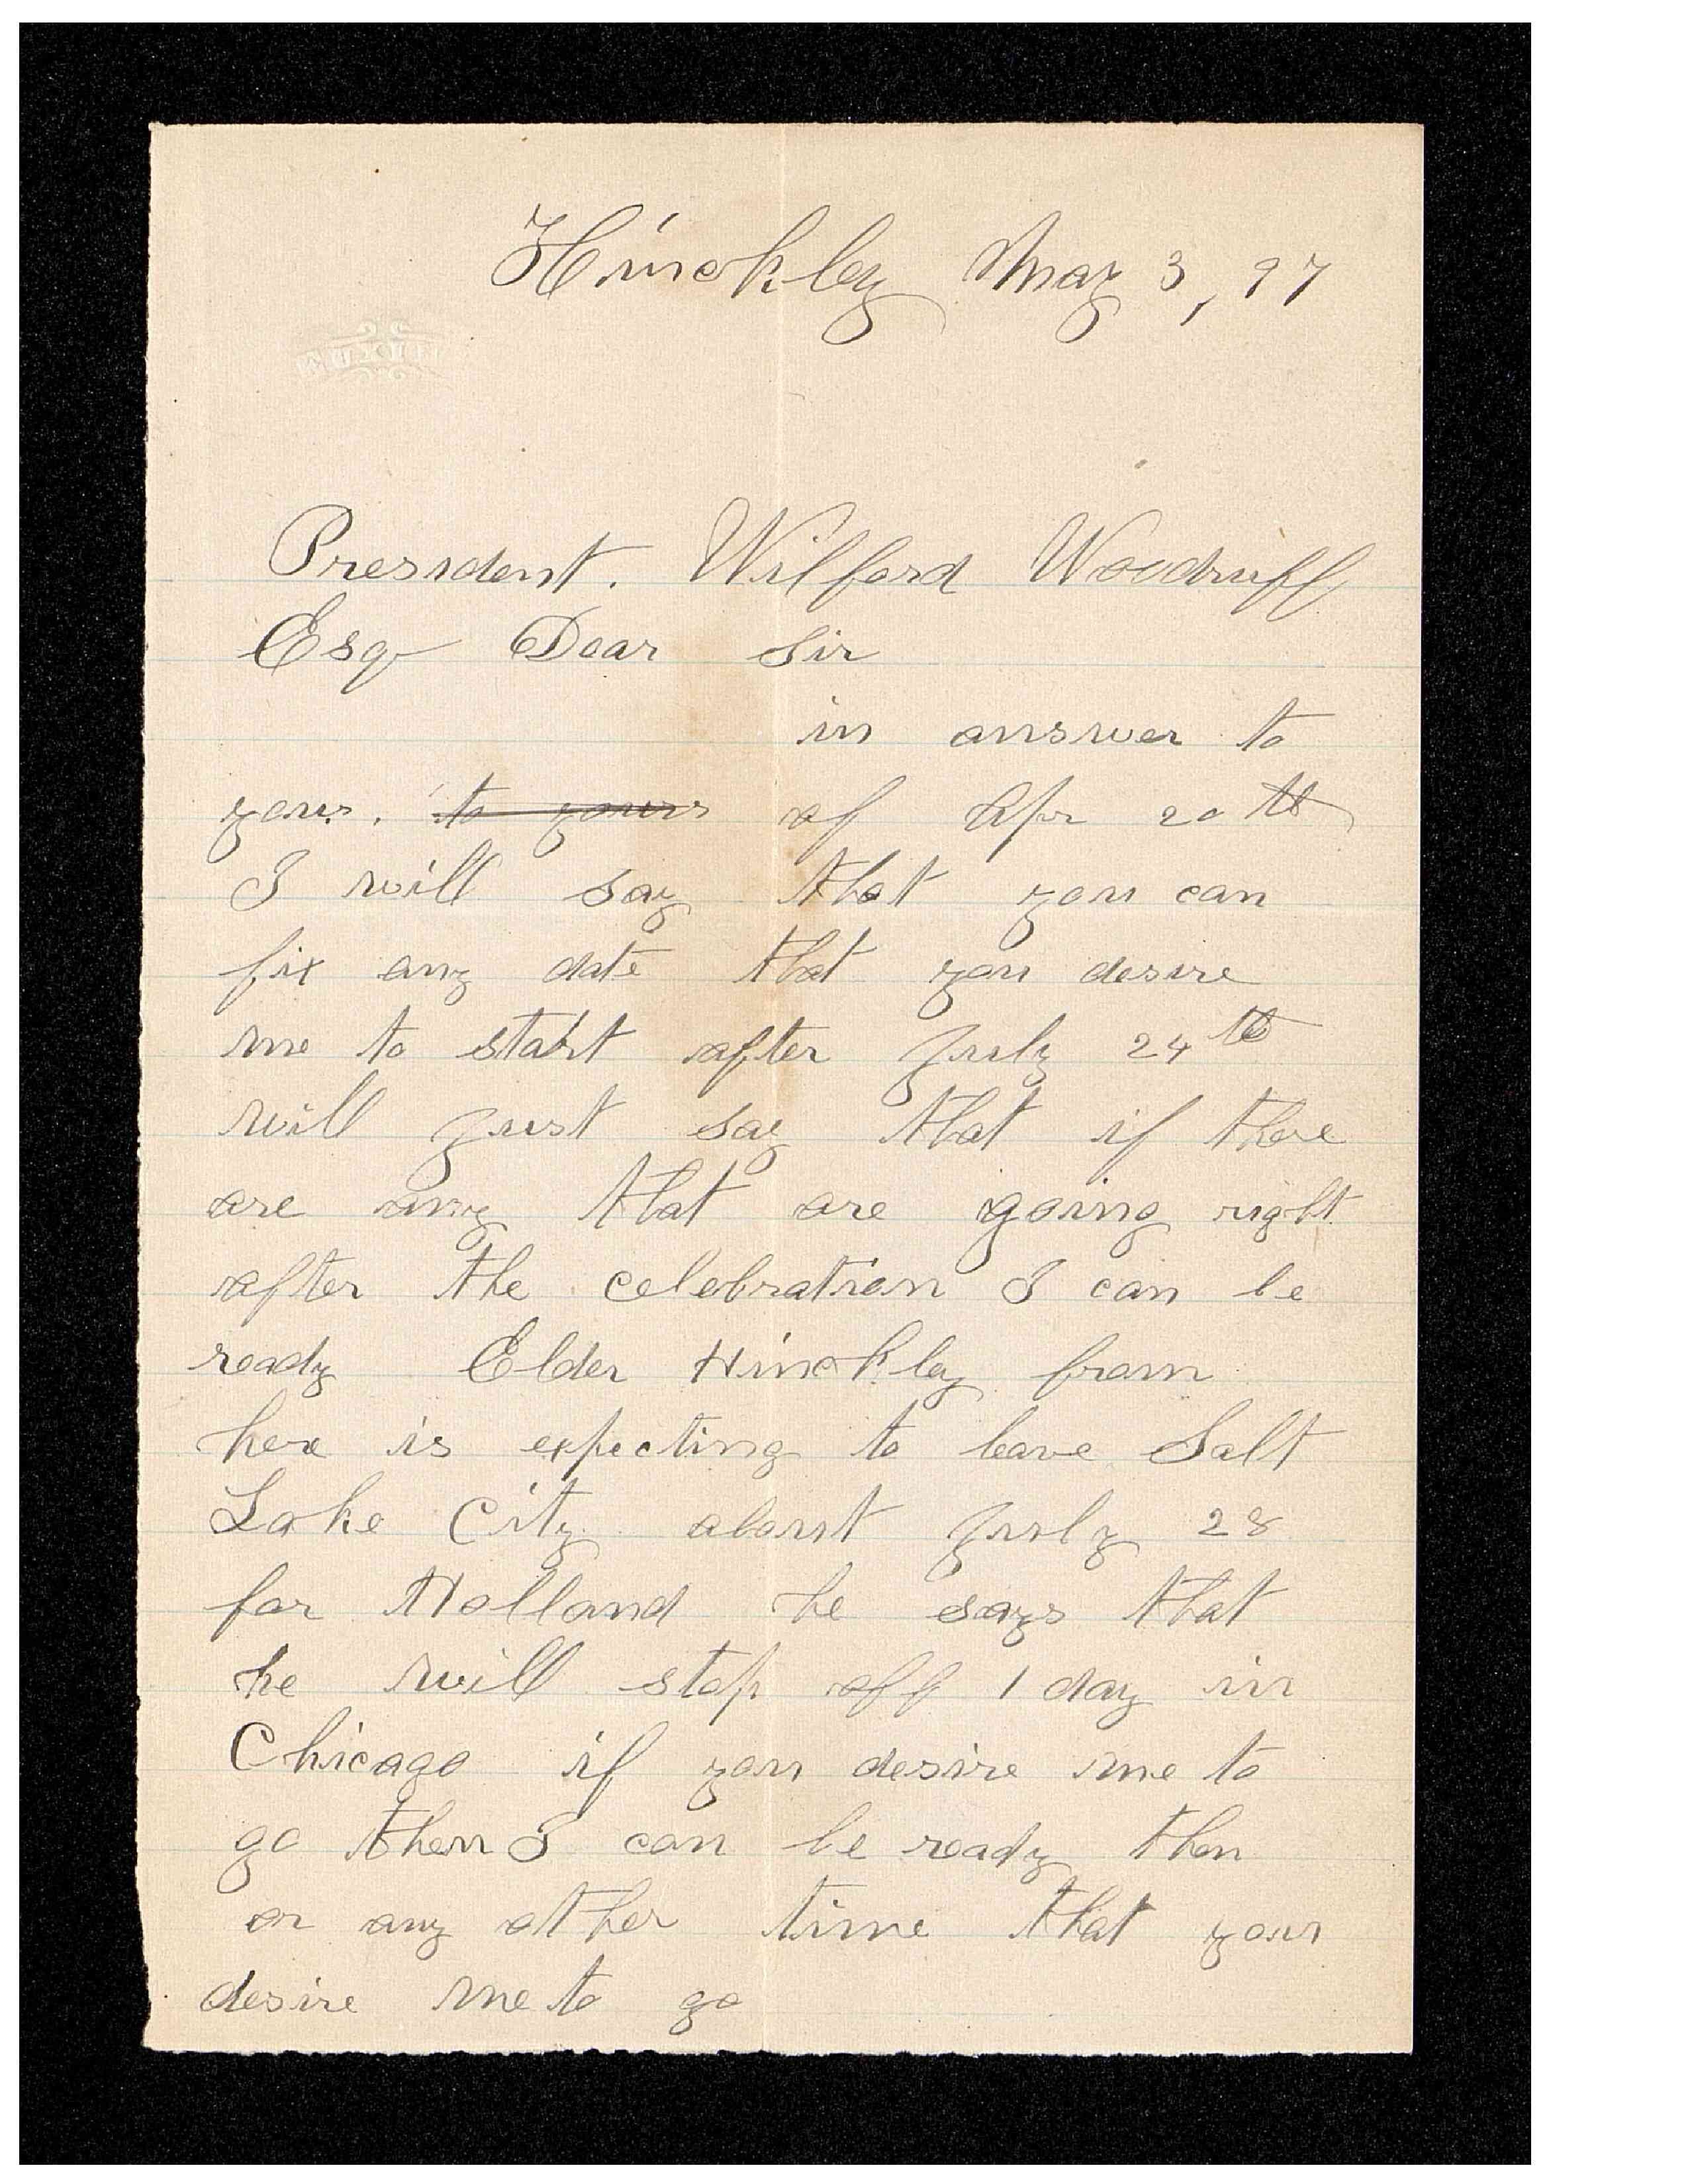 Hinckley May 3, 97
President. Wilford Woodruff
Esq Dear Sir
in answer to
yours. to yours of Apr 20th
I will say that you can
fix any date that you desire
me to start after July 24th
will just say that if there
are any that are going right
after the celebration I can be
ready Elder Hinckley from
here is expecting to leave Salt
Lake City about July 28
for Holland he says that
he will stop off 1 day in
Chicago if you desire me to
go then I can be ready then
or any other time that you
desire me to go